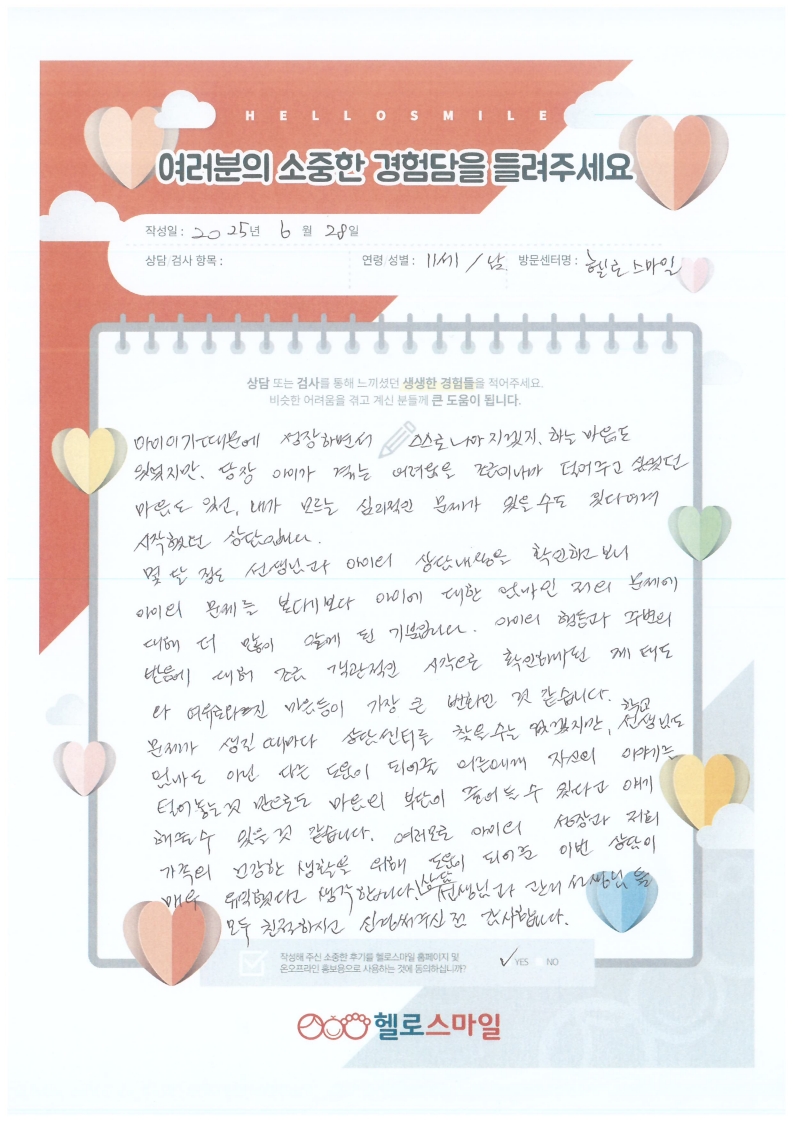 HELLOSMILE
여러분의 소중한 경험담을 들려주세요
작성일 : 2025년 6월 28일
상담 검사 항목 : 연령 성별 : 11세 / 남 방문센터명 : 헬로스마일
상담 또는 검사를 통해 느끼셨던 생생한 경험들을 적어주세요.
비슷한 어려움을 겪고 계신 분들께 큰 도움이 됩니다.
아이이기때문에 성장하면서 스스로 나아지겠지. 하는 마음도
있었지만, 당장 아이가 겪는 어려움을 조금이나마 덜어주고 싶었던
마음도 있던, 내가 모르는 심리적인 문제가 있을 수도 있다여겨
시작했던 상담입니다.
몇 달 정도 선생님과 아이의 상담내용을 확인하고 보니
아이의 문제를 보다기보다 아이에 대한 엄마인 저의 문제에
대해 더 많이 알게 된 기분입니다. 아이의 행동과 주변의
반응에 대해 조금 객관적인 시각으로 확인하게된 제 태도
와 여유로워진 마음등이 가장 큰 변화인 것 같습니다.
문제가 생길 때마다 상담센터를 찾을 수는 없겠지만, 학교 선생님도
엄마도 아닌 다른 도움이 되어줄 어른에게 자신의 이야기를
털어놓는것 만으로도 마음의 부담이 줄어들 수 있다고 얘기
해줄 수 있을 것 같습니다. 여러모로 아이의 성장과 저희
가족의 건강한 생활을 위해 도움이 되어준 이번 상담이
매우 유익했다고 생각합니다. 상담 선생님과 관리 선생님 들
모두 친절하시고 신경써주신 점 감사합니다.
작성해 주신 소중한 후기를 헬로스마일 홈페이지 및
온오프라인 홍보용으로 사용하는 것에 동의하십니까? YES NO
헬로스마일